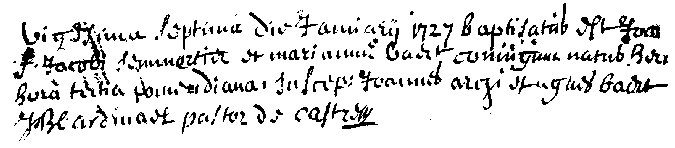 vigesima septima die January 1727 baptisatus est Joan
f. Jacobi Semmortier et marianne baert coniugum natus heri
hora tertia pomeridiana. suscep: Joannes et agnes baert
pastor de Castre